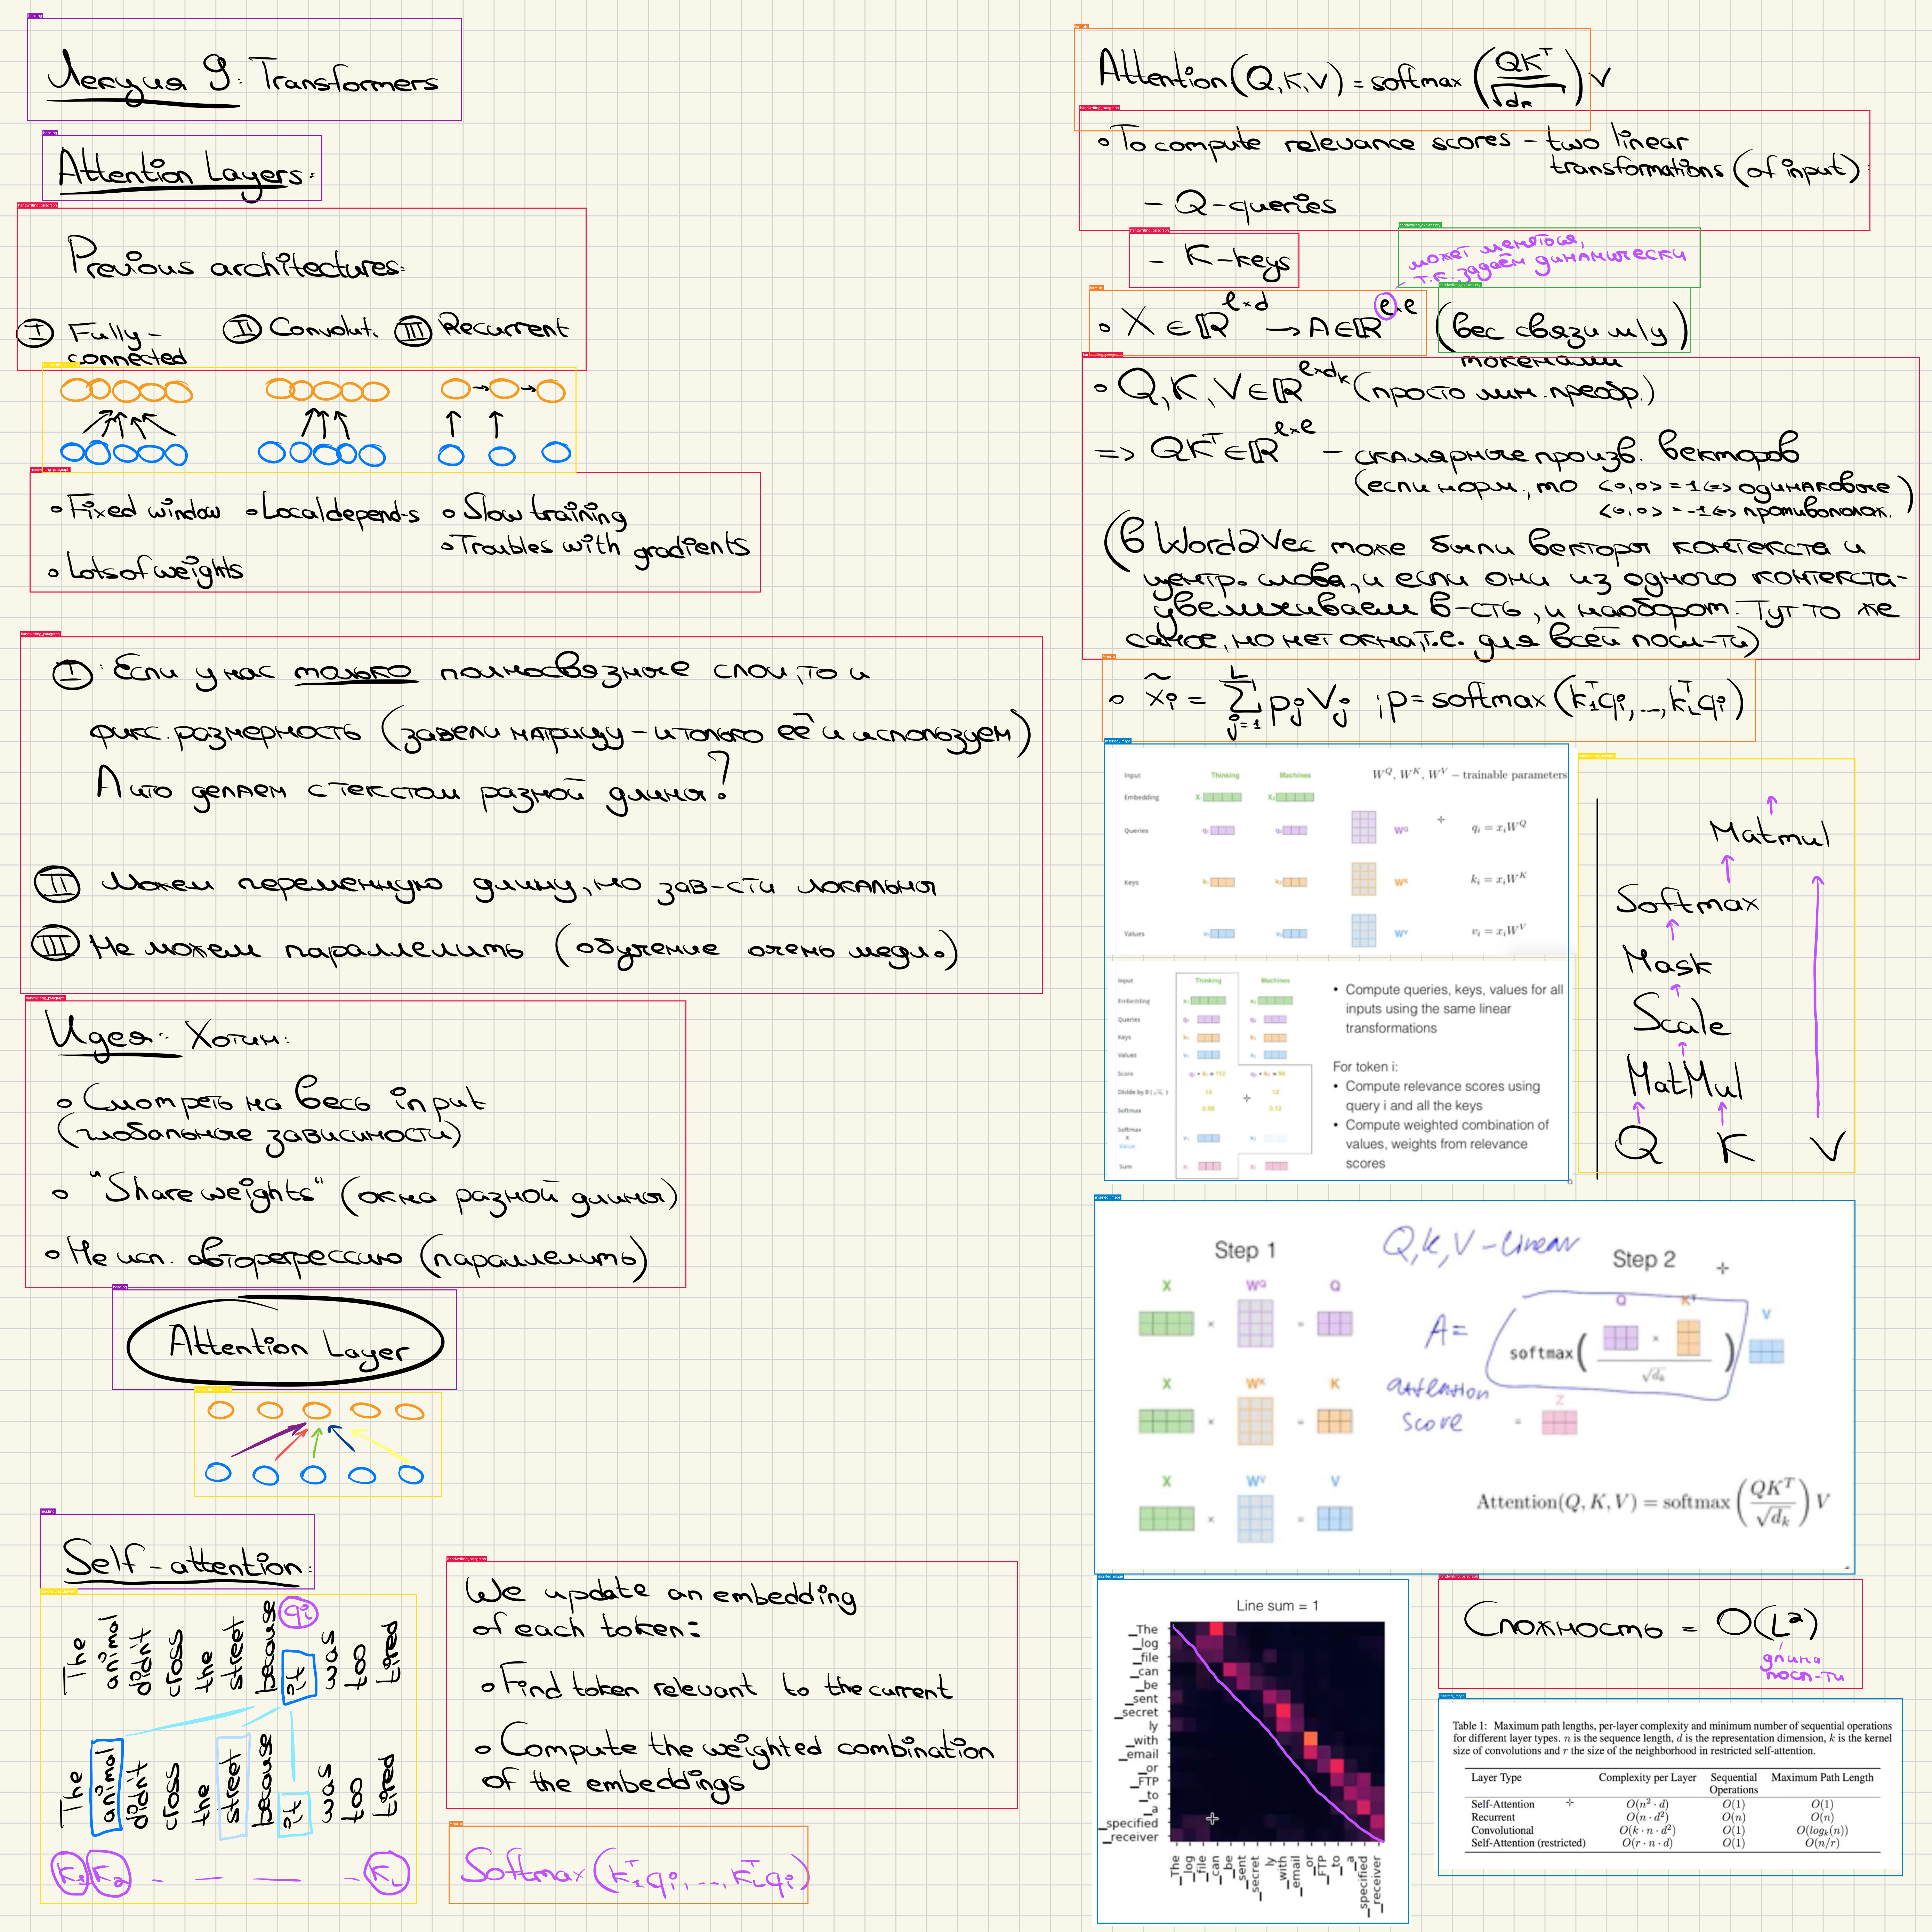 Лекция 9: Transformers
Attention Layers:
Previous architectures:
I Fully-connected
II Convolut.
III Recurrent
∘ Fixed window
∘ Lots of weights
∘ Local depend-s
∘ Slow training
∘ Troubles with gradients
I: Если у нас только полносвязные слои, то и
фикс. размерность (завели матрицу - и только её и используем)
А что делаем с текстом разной длины?
II Можем переменную длину, но зав-сти локальны
III Не можем параллелить (обучение очень медл.)
Идея: Хотим:
∘ Смотреть на весь input
(глобальные зависимости)
∘ "Share weights" (окна разной длины)
∘ Не исп. авторегрессию (параллелить)
Attention Layer
Self-attention:
The animal didn't cross the street because it was too tired
qi
The animal didn't cross the street because it was too tired
K1 K2 - - - - KL
We update an embedding
of each token:
∘ Find token relevant to the current
∘ Compute the weighted combination
of the embeddings
Softmax(k1ᵀqi, ..., kLᵀqi)
Attention(Q,K,V) = softmax(QKᵀ/√dk) V
∘ To compute relevance scores - two linear
transformations (of input):
- Q-queries
- K-keys
может меняться,
т.к. задаём динамически
∘ X ∈ ℝ^{l×d} → A ∈ ℝ^{l×l} (вес связи м/у
токенами)
∘ Q, K, V ∈ ℝ^{l×dk} (просто лин. преобр.)
=> QKᵀ ∈ ℝ^{l×l} - скалярные произв. векторов
(если норм., то <∘,∘> = 1 <=> одинаковые
<∘,∘> = -1 <=> противополож.)
(В Word2Vec тоже были вектора контекста и
центр. слова, и если они из одного контекста-
увеличиваем в-сть, и наоборот. Тут то же
самое, но нет окна, т.е. для всей посл-ти)
∘ x̃i = Σ_{j=1}^{L} pj Vj ; p = softmax(k1ᵀqi, ..., kLᵀqi)
Input Thinking Machines W^Q, W^K, W^V – trainable parameters
Embedding X₁ X₂
Queries q₁ q₂ W^Q q_i = x_i W^Q
Keys k₁ k₂ W^K k_i = x_i W^K
Values v₁ v₂ W^V v_i = x_i W^V
Input Thinking Machines
Embedding x₁ x₂
Queries q₁ q₂
Keys k₁ k₂
Values v₁ v₂
Score q₁ • k₁ = 112 q₁ • k₂ = 96
Divide by 8 (√dk) 14 12
Softmax 0.88 0.12
Softmax
X
Value v₁ v₂
Sum z₁ z₂
• Compute queries, keys, values for all
inputs using the same linear
transformations
For token i:
• Compute relevance scores using
query i and all the keys
• Compute weighted combination of
values, weights from relevance
scores
Matmul
Softmax
Mask
Scale
MatMul
Q K V
Step 1
Q, K, V - linear
Step 2
X × W^Q = Q
X × W^K = K
X × W^V = V
A =
softmax( Q × Kᵀ / √dk ) V
attention
score
= Z
Attention(Q, K, V) = softmax(QKᵀ/√dk) V
Line sum = 1
_The
_log
_file
_can
_be
_sent
_secret
ly
_with
_email
_or
_FTP
_to
_a
_specified
_receiver
_The _log _file _can _be _sent _secret ly _with _email _or _FTP _to _a _specified _receiver
Сложность = O(L²)
длина
посл-ти
Table 1: Maximum path lengths, per-layer complexity and minimum number of sequential operations
for different layer types. n is the sequence length, d is the representation dimension, k is the kernel
size of convolutions and r the size of the neighborhood in restricted self-attention.
Layer Type Complexity per Layer Sequential Operations Maximum Path Length
Self-Attention O(n² · d) O(1) O(1)
Recurrent O(n · d²) O(n) O(n)
Convolutional O(k · n · d²) O(1) O(log_k(n))
Self-Attention (restricted) O(r · n · d) O(1) O(n/r)